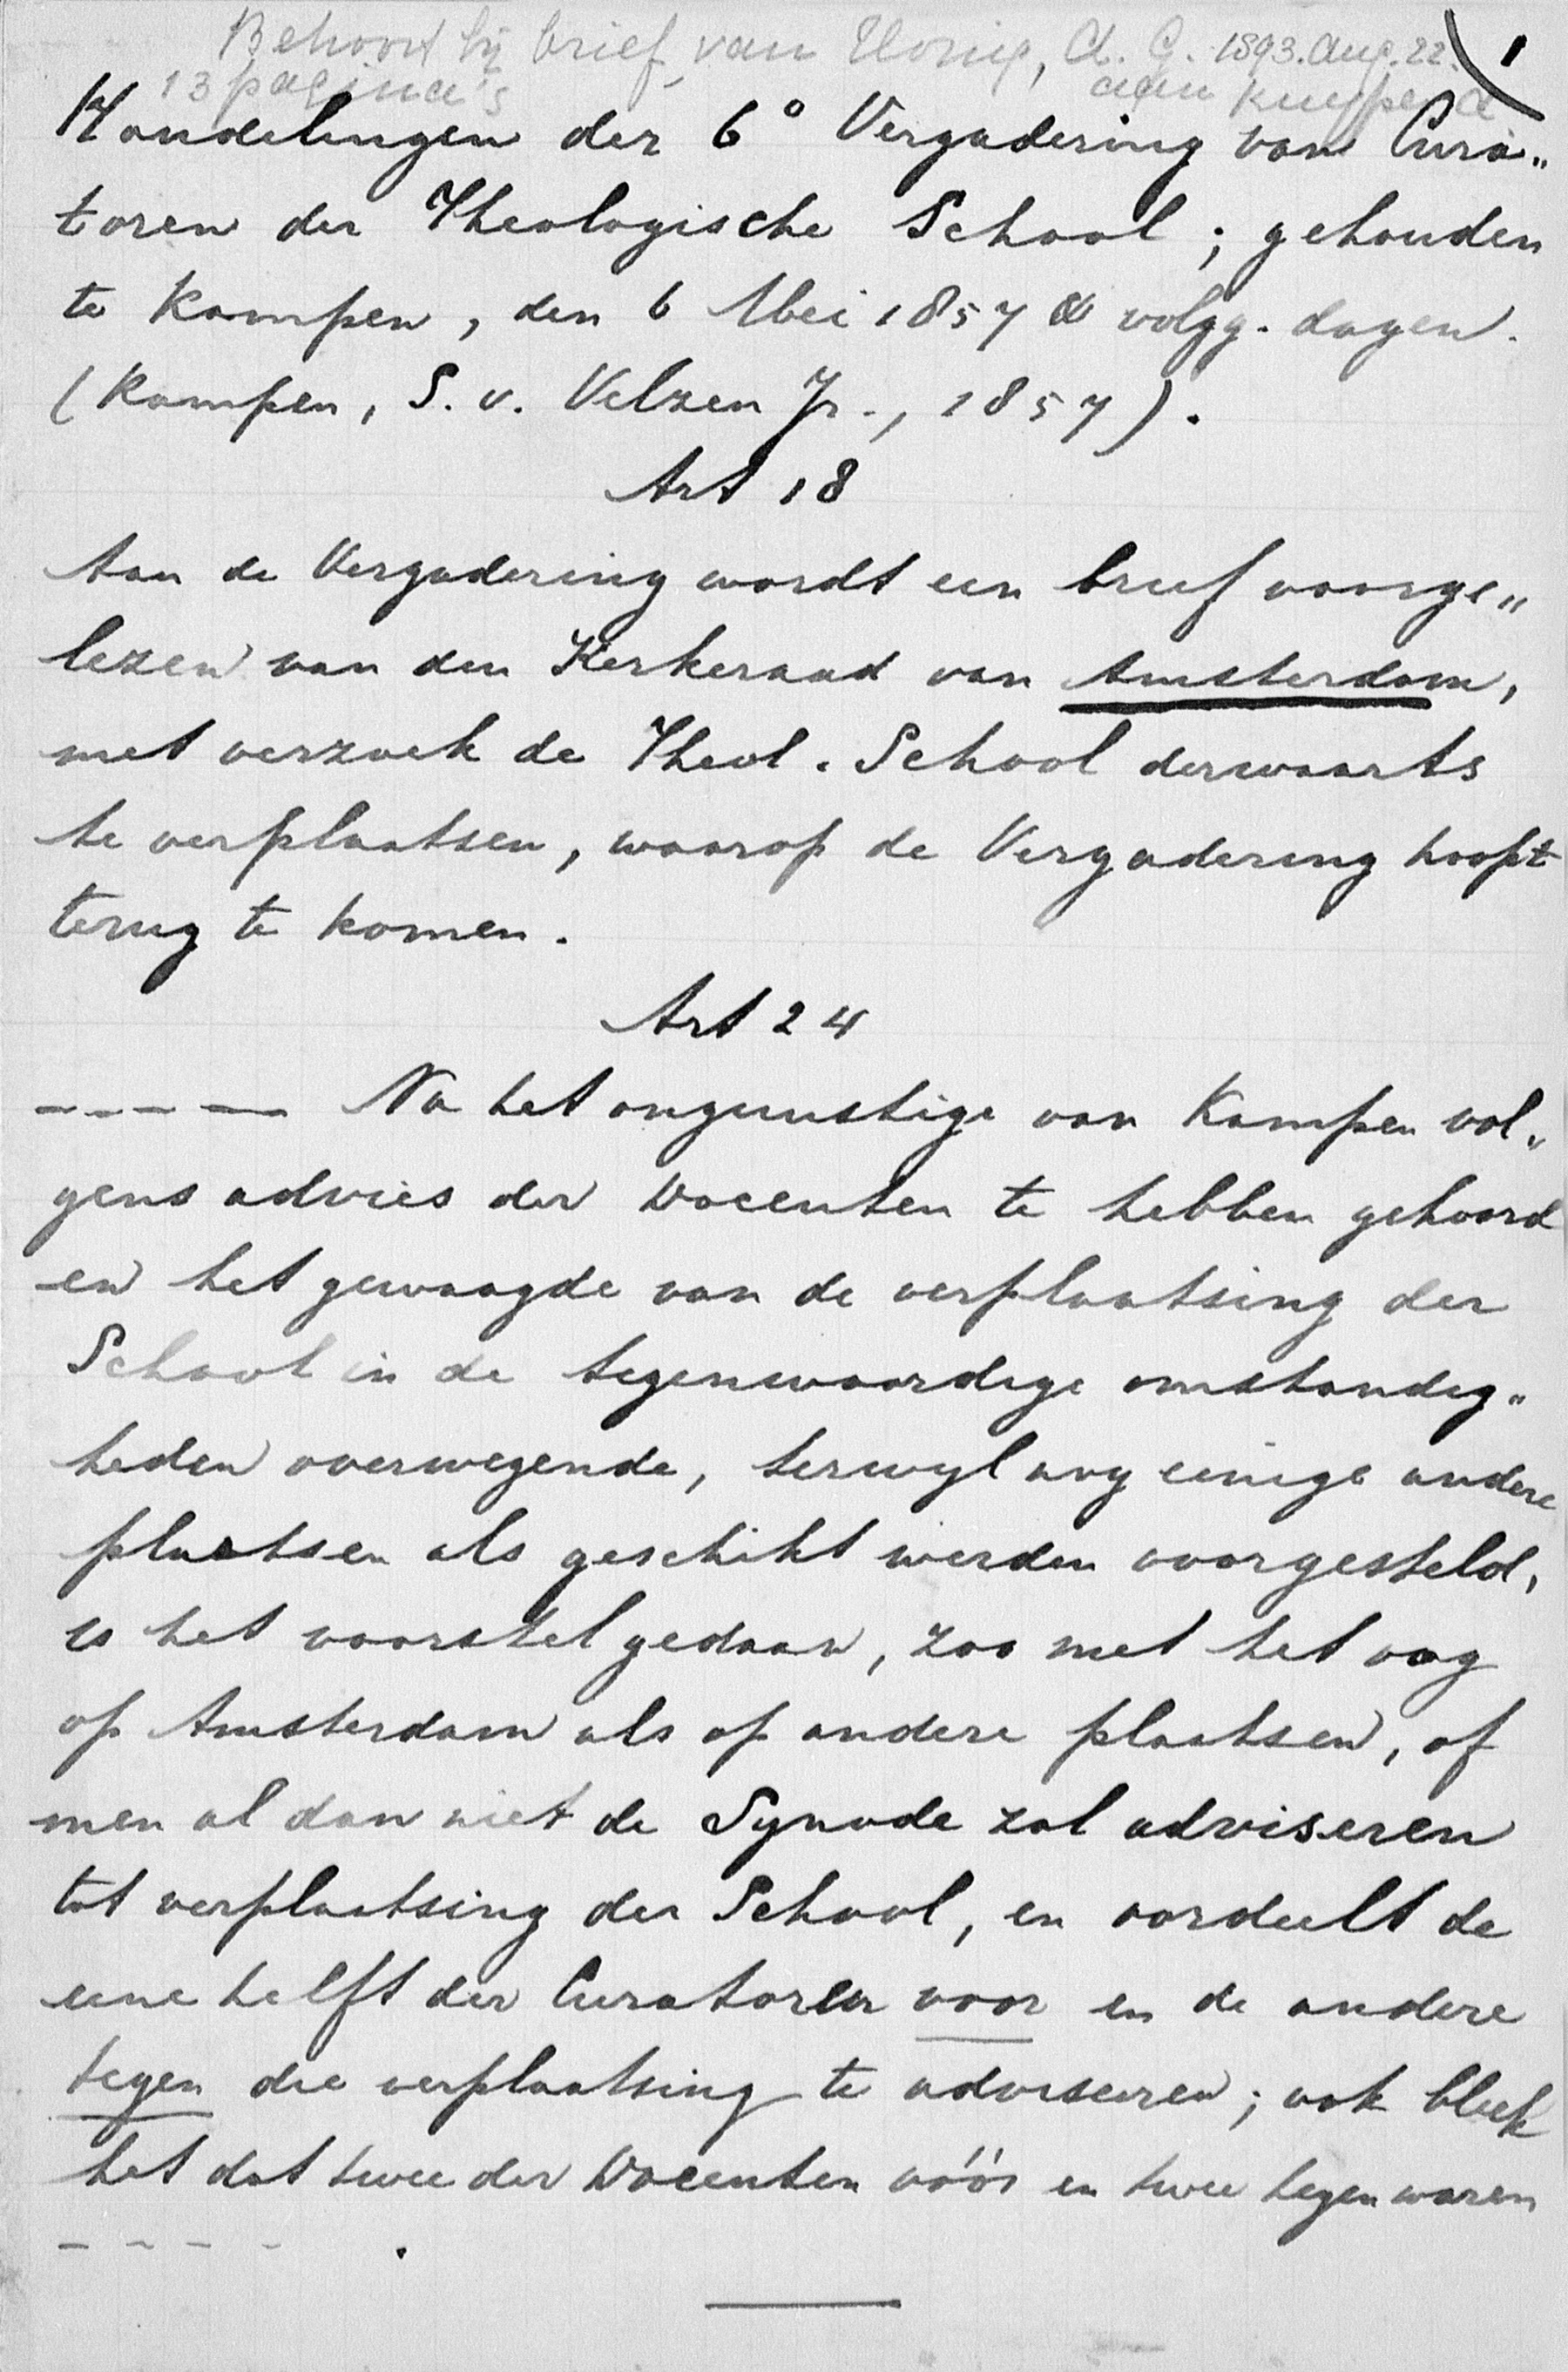 Behoort bij brief van Honig, A. G. 1893. Aug. 22. 1
13 pagina's aan Kuyper, A
Handelingen der 6° Vergadering van Cura„
toren der Theologische School ; gehouden
te Kampen, den 6 Mei 1857 & volgg. dagen.
(Kampen, S. v. Velzen Jr., 1857).
Art 18
Aan de Vergadering wordt een brief voorge„
lezen van den Kerkeraad van Amsterdam,
met verzoek de Theol. School derwaarts
te verplaatsen, waarop de Vergadering hoopt
terug te komen.
Art 24
----- Na het ongunstige van Kampen vol„
gens advies der Docenten te hebben gehoord
en het gewaagde van de verplaatsing der
School in de tegenwoordige omstandig„
heden overwegende, terwyl nog eenige andere
plaatsen als geschikt werden voorgesteld,
is het voorstel gedaan, zoo met het oog
op Amsterdam als op andere plaatsen, of
men al dan niet de Synode zal adviseren
tot verplaatsing der School, en oordeelt de
eene helft der Curatoren voor en de andere
tegen die verplaatsing te adviseeren; ook bleek
het dat twee der Docenten vóór en twee tegen waren
----- .